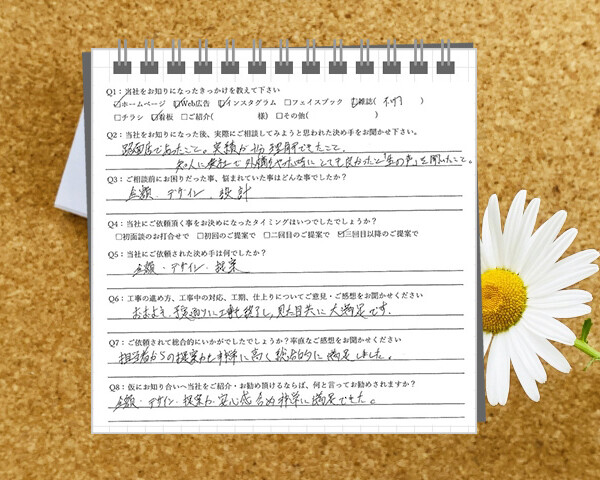 Q1：当社をお知りになったきっかけを教えて下さい
☑ホームページ ☑Web広告 ☑インスタグラム □フェイスブック ☑雑誌( )
□チラシ ☑看板 □ご紹介( 様) □その他( )
Q2：当社をお知りになった後、実際にご相談してみようと思われた決め手をお聞かせ下さい。
路面店であったこと。実績から理解できたこと。
知人に貴社で外構をやった時にとても良かったと「生の声」を聞いたこと。
Q3：ご相談前にお困りだった事、悩まれていた事はどんな事でしたか？
金額・デザイン・設計
Q4：当社にご依頼頂く事をお決めになったタイミングはいつでしたでしょうか？
□初面談のお打合せで □初回のご提案で □二回目のご提案で ☑三回目以降のご提案で
Q5：当社にご依頼された決め手は何でしたか？
金額・デザイン・提案
Q6：工事の進め方、工事中の対応、工期、仕上りについてご意見・ご感想をお聞かせください
おおよそ、予定通りに工事も終了し、見た目共に大満足です。
Q7：ご依頼されて総合的にいかがでしたでしょうか？率直なご感想をお聞かせください
担当者からの提案力も非常に高く総合的に満足しました。
Q8：仮にお知り合いへ当社をご紹介・お勧め頂けるならば、何と言ってお勧めされますか？
金額・デザイン・提案力・安心感含め非常に満足できた。